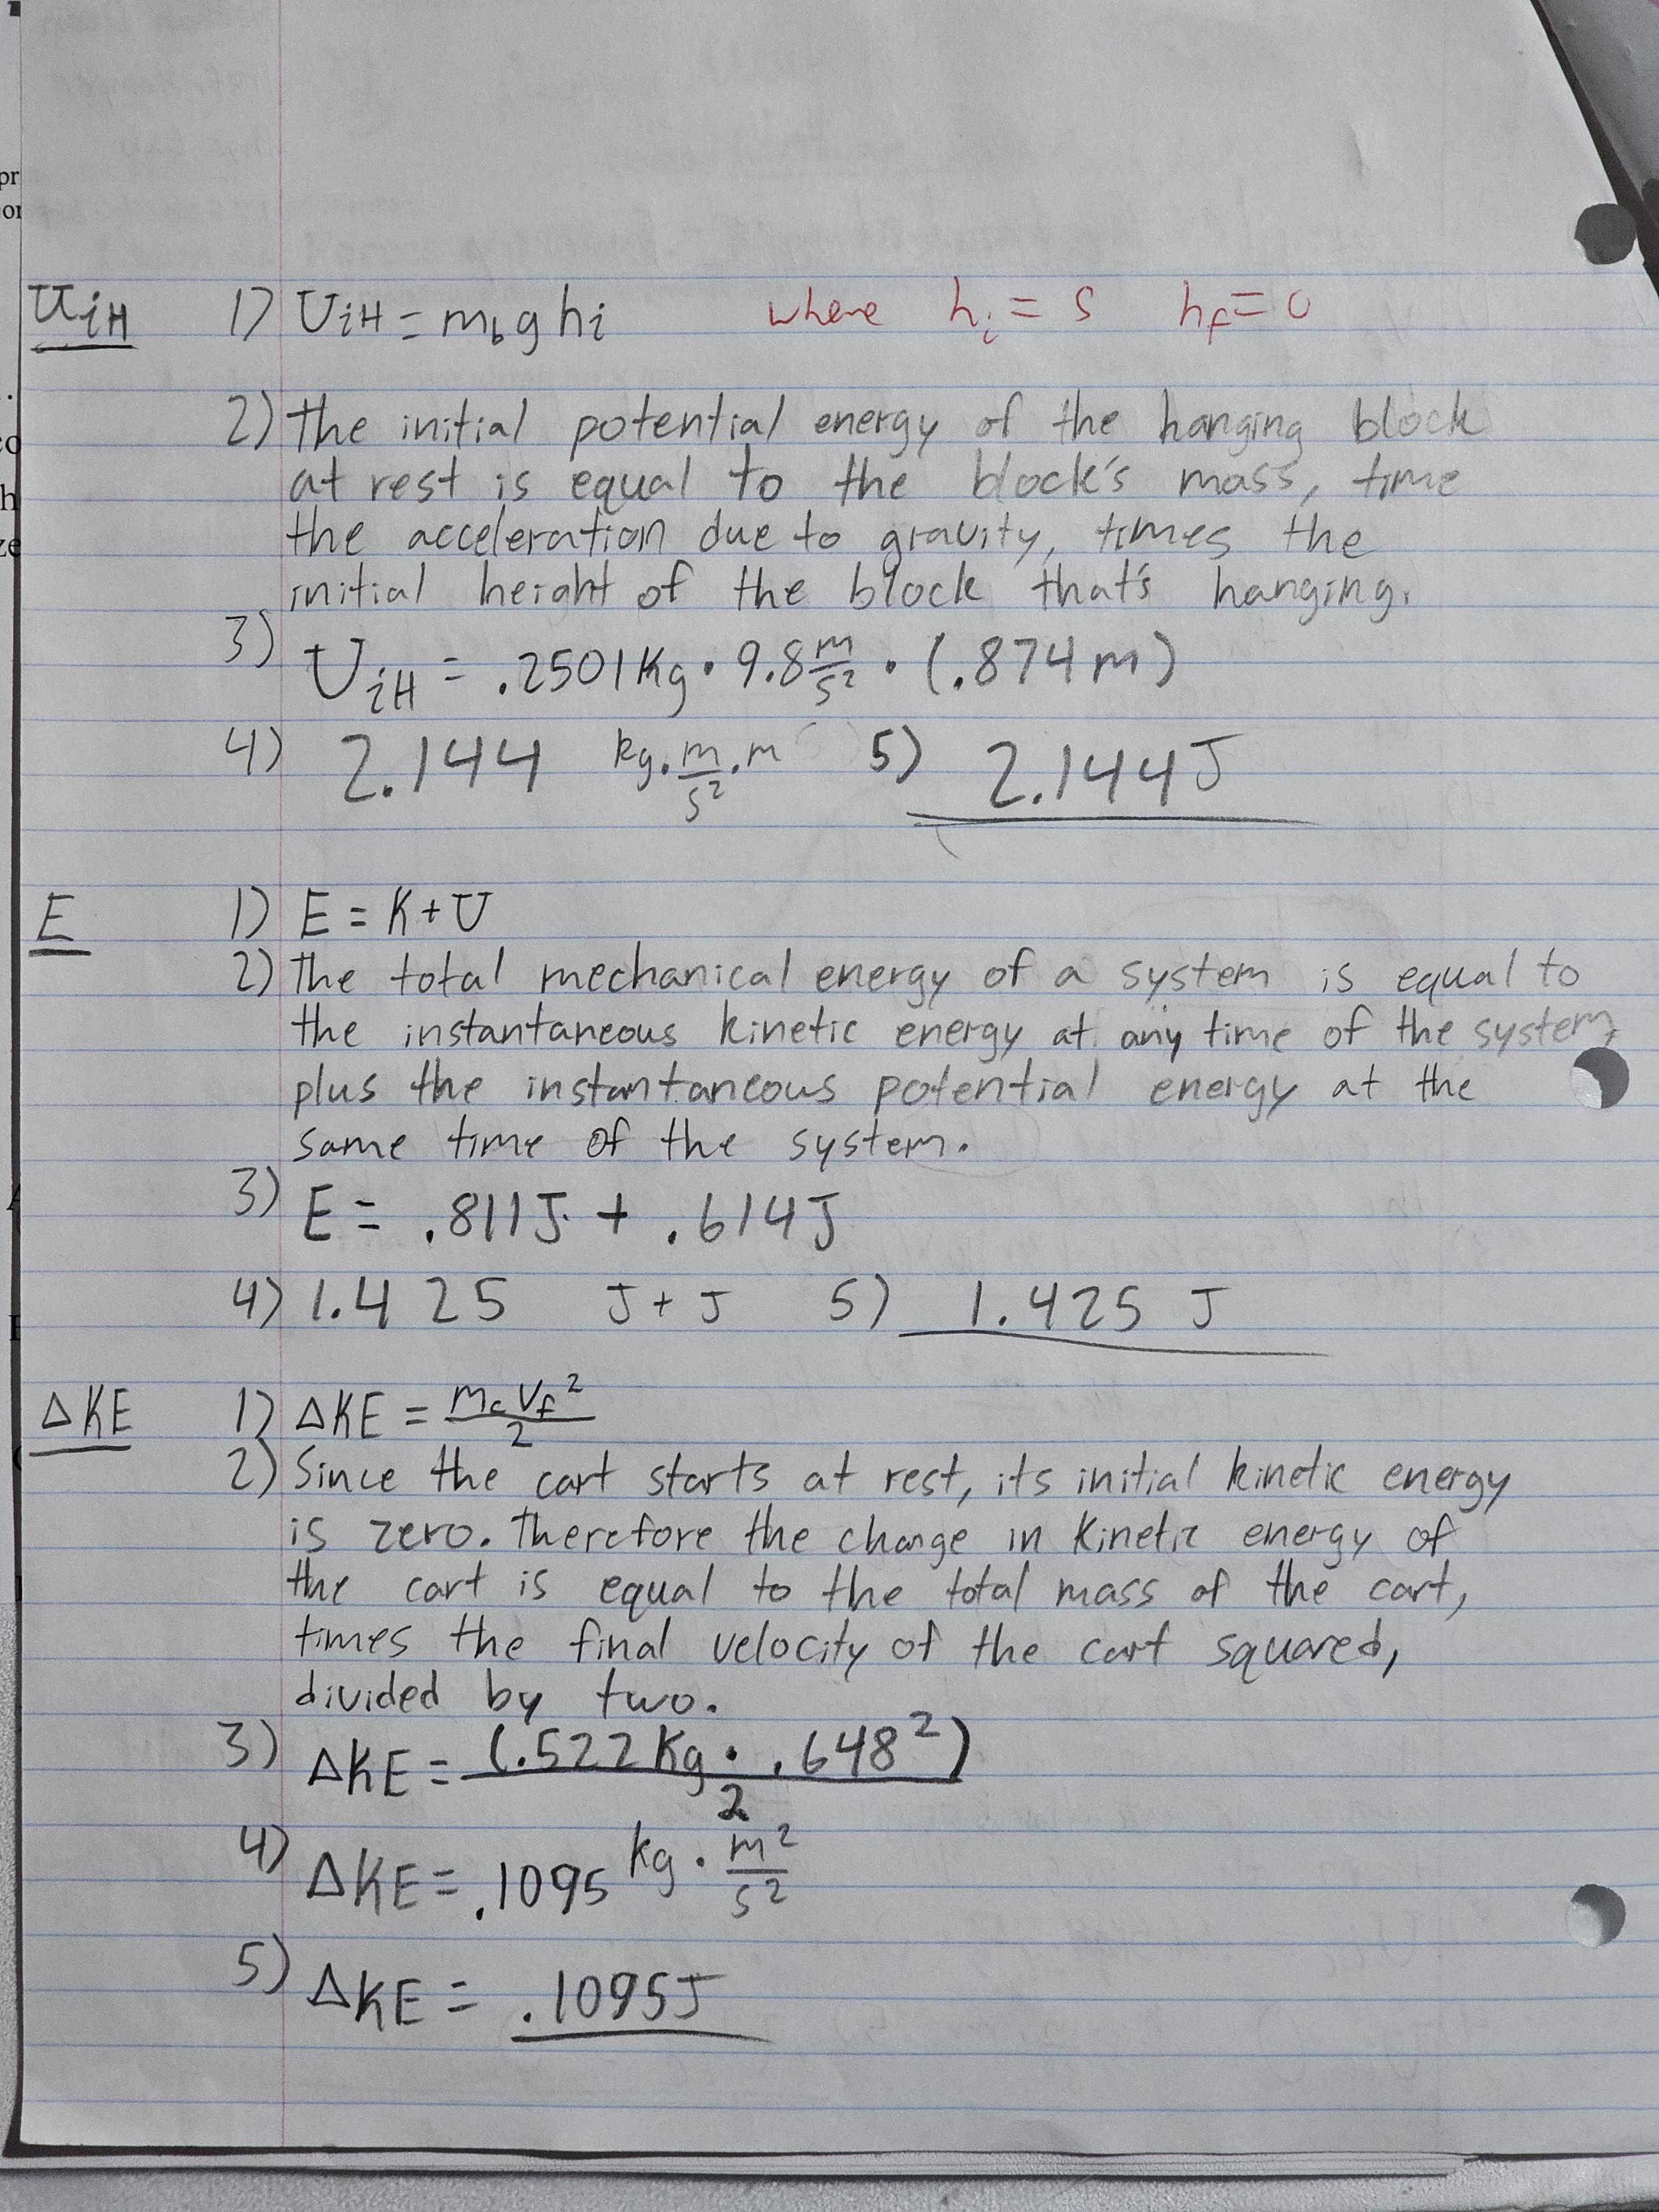 U_iH 1) U_iH = m_b g h_i where h_i = S h_f = 0
2) The initial potential energy of the hanging block
at rest is equal to the block's mass, time
the acceleration due to gravity, times the
initial height of the block that's hanging.
3) U_iH = .2501 Kg · 9.8 m/s² · (.874 m)
4) 2.144 kg · m/s² · m 5) 2.144 J
E 1) E = K + U
2) The total mechanical energy of a system is equal to
the instantaneous kinetic energy at any time of the system,
plus the instantaneous potential energy at the
same time of the system.
3) E = .811 J + .614 J
4) 1.425 J + J 5) 1.425 J
ΔKE 1) ΔKE = m_c v_f² / 2
2) Since the cart starts at rest, its initial kinetic energy
is zero. Therefore the change in kinetic energy of
the cart is equal to the total mass of the cart,
times the final velocity of the cart squared,
divided by two.
3) ΔKE = (.522 Kg · .648²) / 2
4) ΔKE = .1095 kg · m²/s²
5) ΔKE = .1095 J